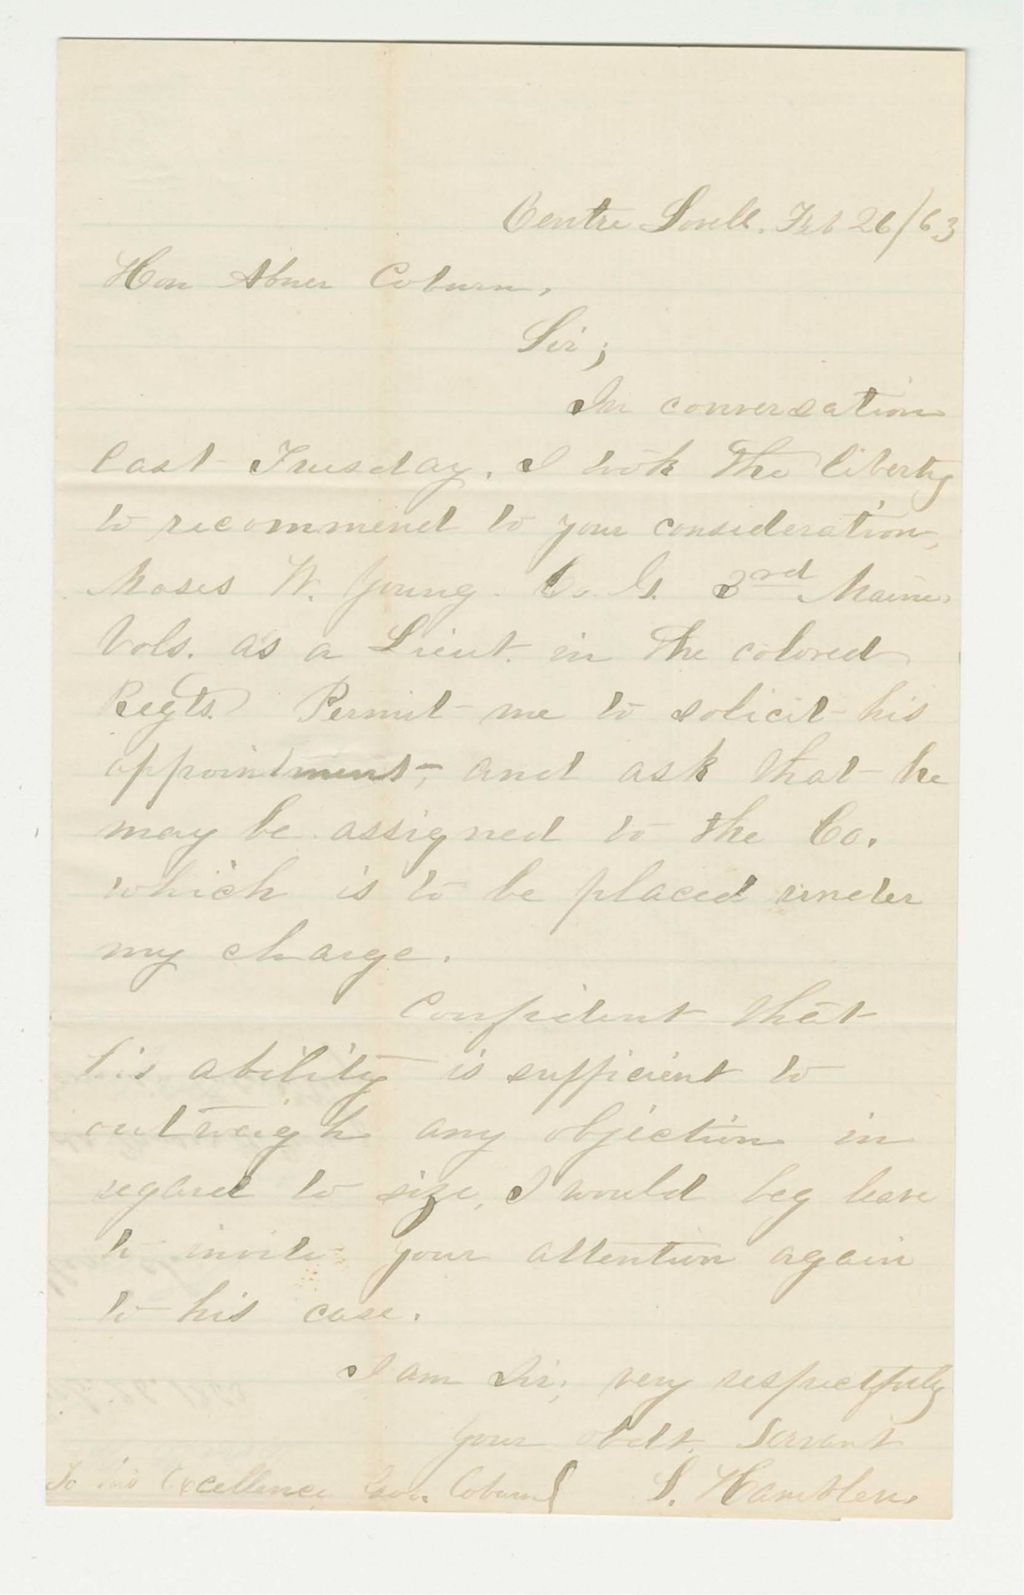 Centre Lovell. Feb 26/63
Hon Abner Coburn,
Sir;
In conversation
last Tuesday, I took the liberty
to recommend to your consideration,
Moses W. Young Co. G. 3rd Maine
Vols. as a Lieut. in the colored
Regts. Permit me to solicit his
appointment, and ask that he
may be assigned to the Co.
which is to be placed under
my charge.
Confident that
his ability is sufficient to
outweigh any objection in
regard to size, I would beg leave
to invite your attention again
to his case.
I am Sir, very respectfuly
your obdt. Servant
To his Excellency Gov. Coburn} S. Hamblen.